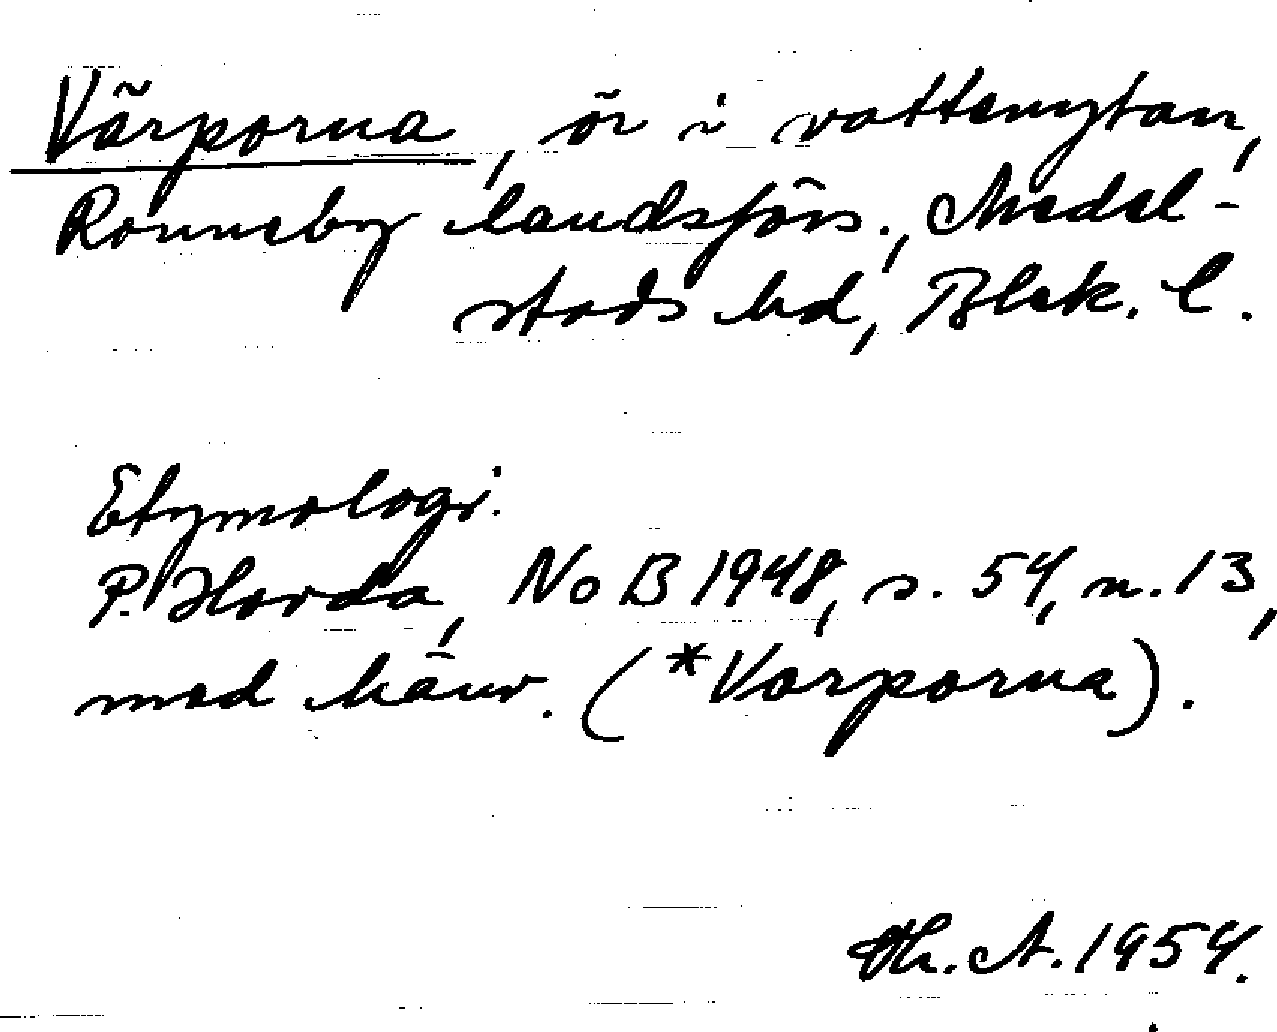 Värporna, ör i vattenytan,
Ronneby landsförs., Medel-
stads hd, Blek. l.
Etymologi.
P. Hovda, NoB 1948, s. 54, n. 13,
med hänv. (*Varporna).
Th. A. 1954.